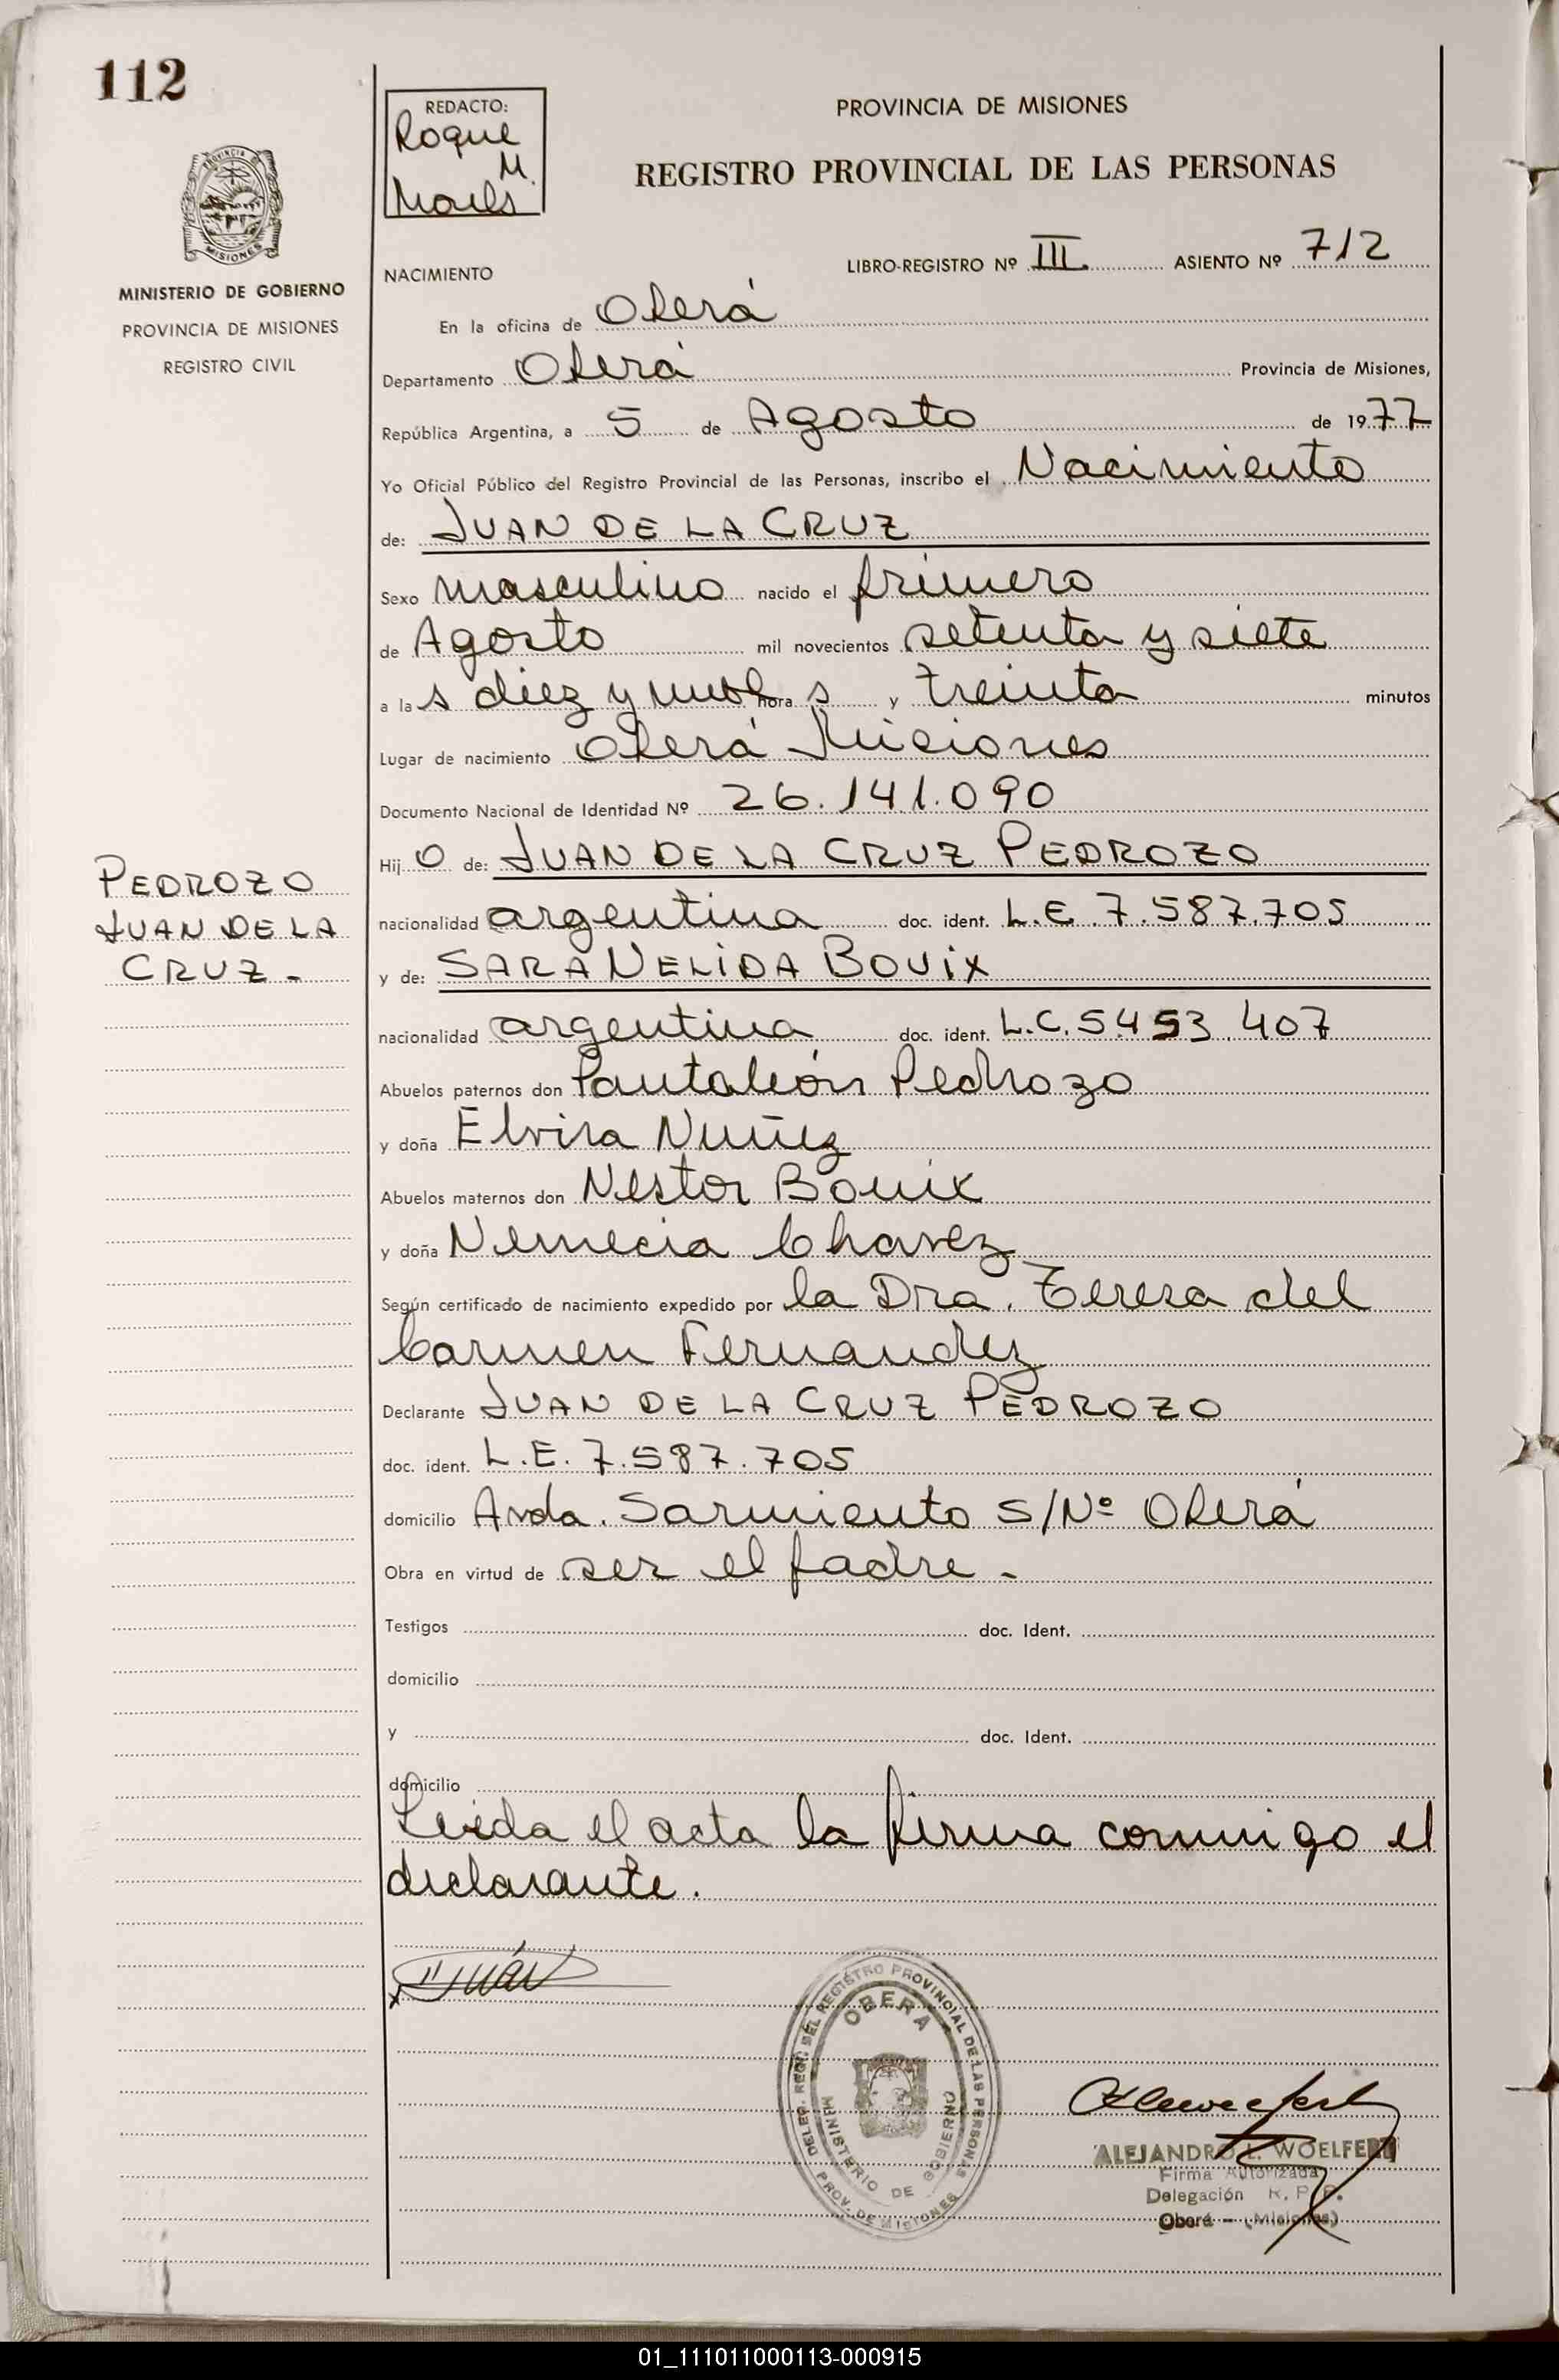 112
REDACTO:
Roque
M.
PROVINCIA DE MISIONES
REGISTRO PROVINCIAL DE LAS PERSONAS
PROVINCIA DE
MISIONES
MINISTERIO DE GOBIERNO
PROVINCIA DE MISIONES
REGISTRO CIVIL
LIBRO-REGISTRO Nº III. ASIENTO Nº 712
NACIMIENTO
En la oficina de Oberá
Departamento Oberá Provincia de Misiones,
República Argentina, a 5 de Agosto de 1977
Yo Oficial Público del Registro Provincial de las Personas, inscribo el Nacimiento
de: JUAN DE LA CRUZ
Sexo masculino nacido el primero
de Agosto mil novecientos setenta y siete
a las diez y nueve horas y treinta minutos
Lugar de nacimiento Oberá Misiones
Documento Nacional de Identidad Nº 26.141.090
Hijo de: JUAN DE LA CRUZ PEDROZO
PEDROZO
JUAN DE LA
CRUZ.-
nacionalidad argentina doc. ident. L.E. 7.587.705
y de: SARA NELIDA BOUIX
nacionalidad argentina doc. ident. L.C. 5453.407
Abuelos paternos don Pantaleón Pedrozo
y doña Elvira Nuñez
Abuelos maternos don Nestor Bouix
y doña Nemecia Chavez
Según certificado de nacimiento expedido por la Dra. Teresa del
Carmen Fernandez
Declarante JUAN DE LA CRUZ PEDROZO
doc. ident. L.E. 7.587.705
domicilio Avda. Sarmiento S/Nº Oberá
Obra en virtud de ser el padre.-
Testigos doc. Ident.
domicilio
y doc. Ident.
domicilio
Leída el acta la firma conmigo el
declarante.
DELEG. REGL. DEL REGISTRO PROVINCIAL DE LAS PERSONAS
OBERA
MINISTERIO DE GOBIERNO
PROV. DE MISIONES
ALEJANDRO L. WOELFERT
Firma Autorizada
Delegación R. P. P.
Oberá - (Misiones)
01_111011000113-000915